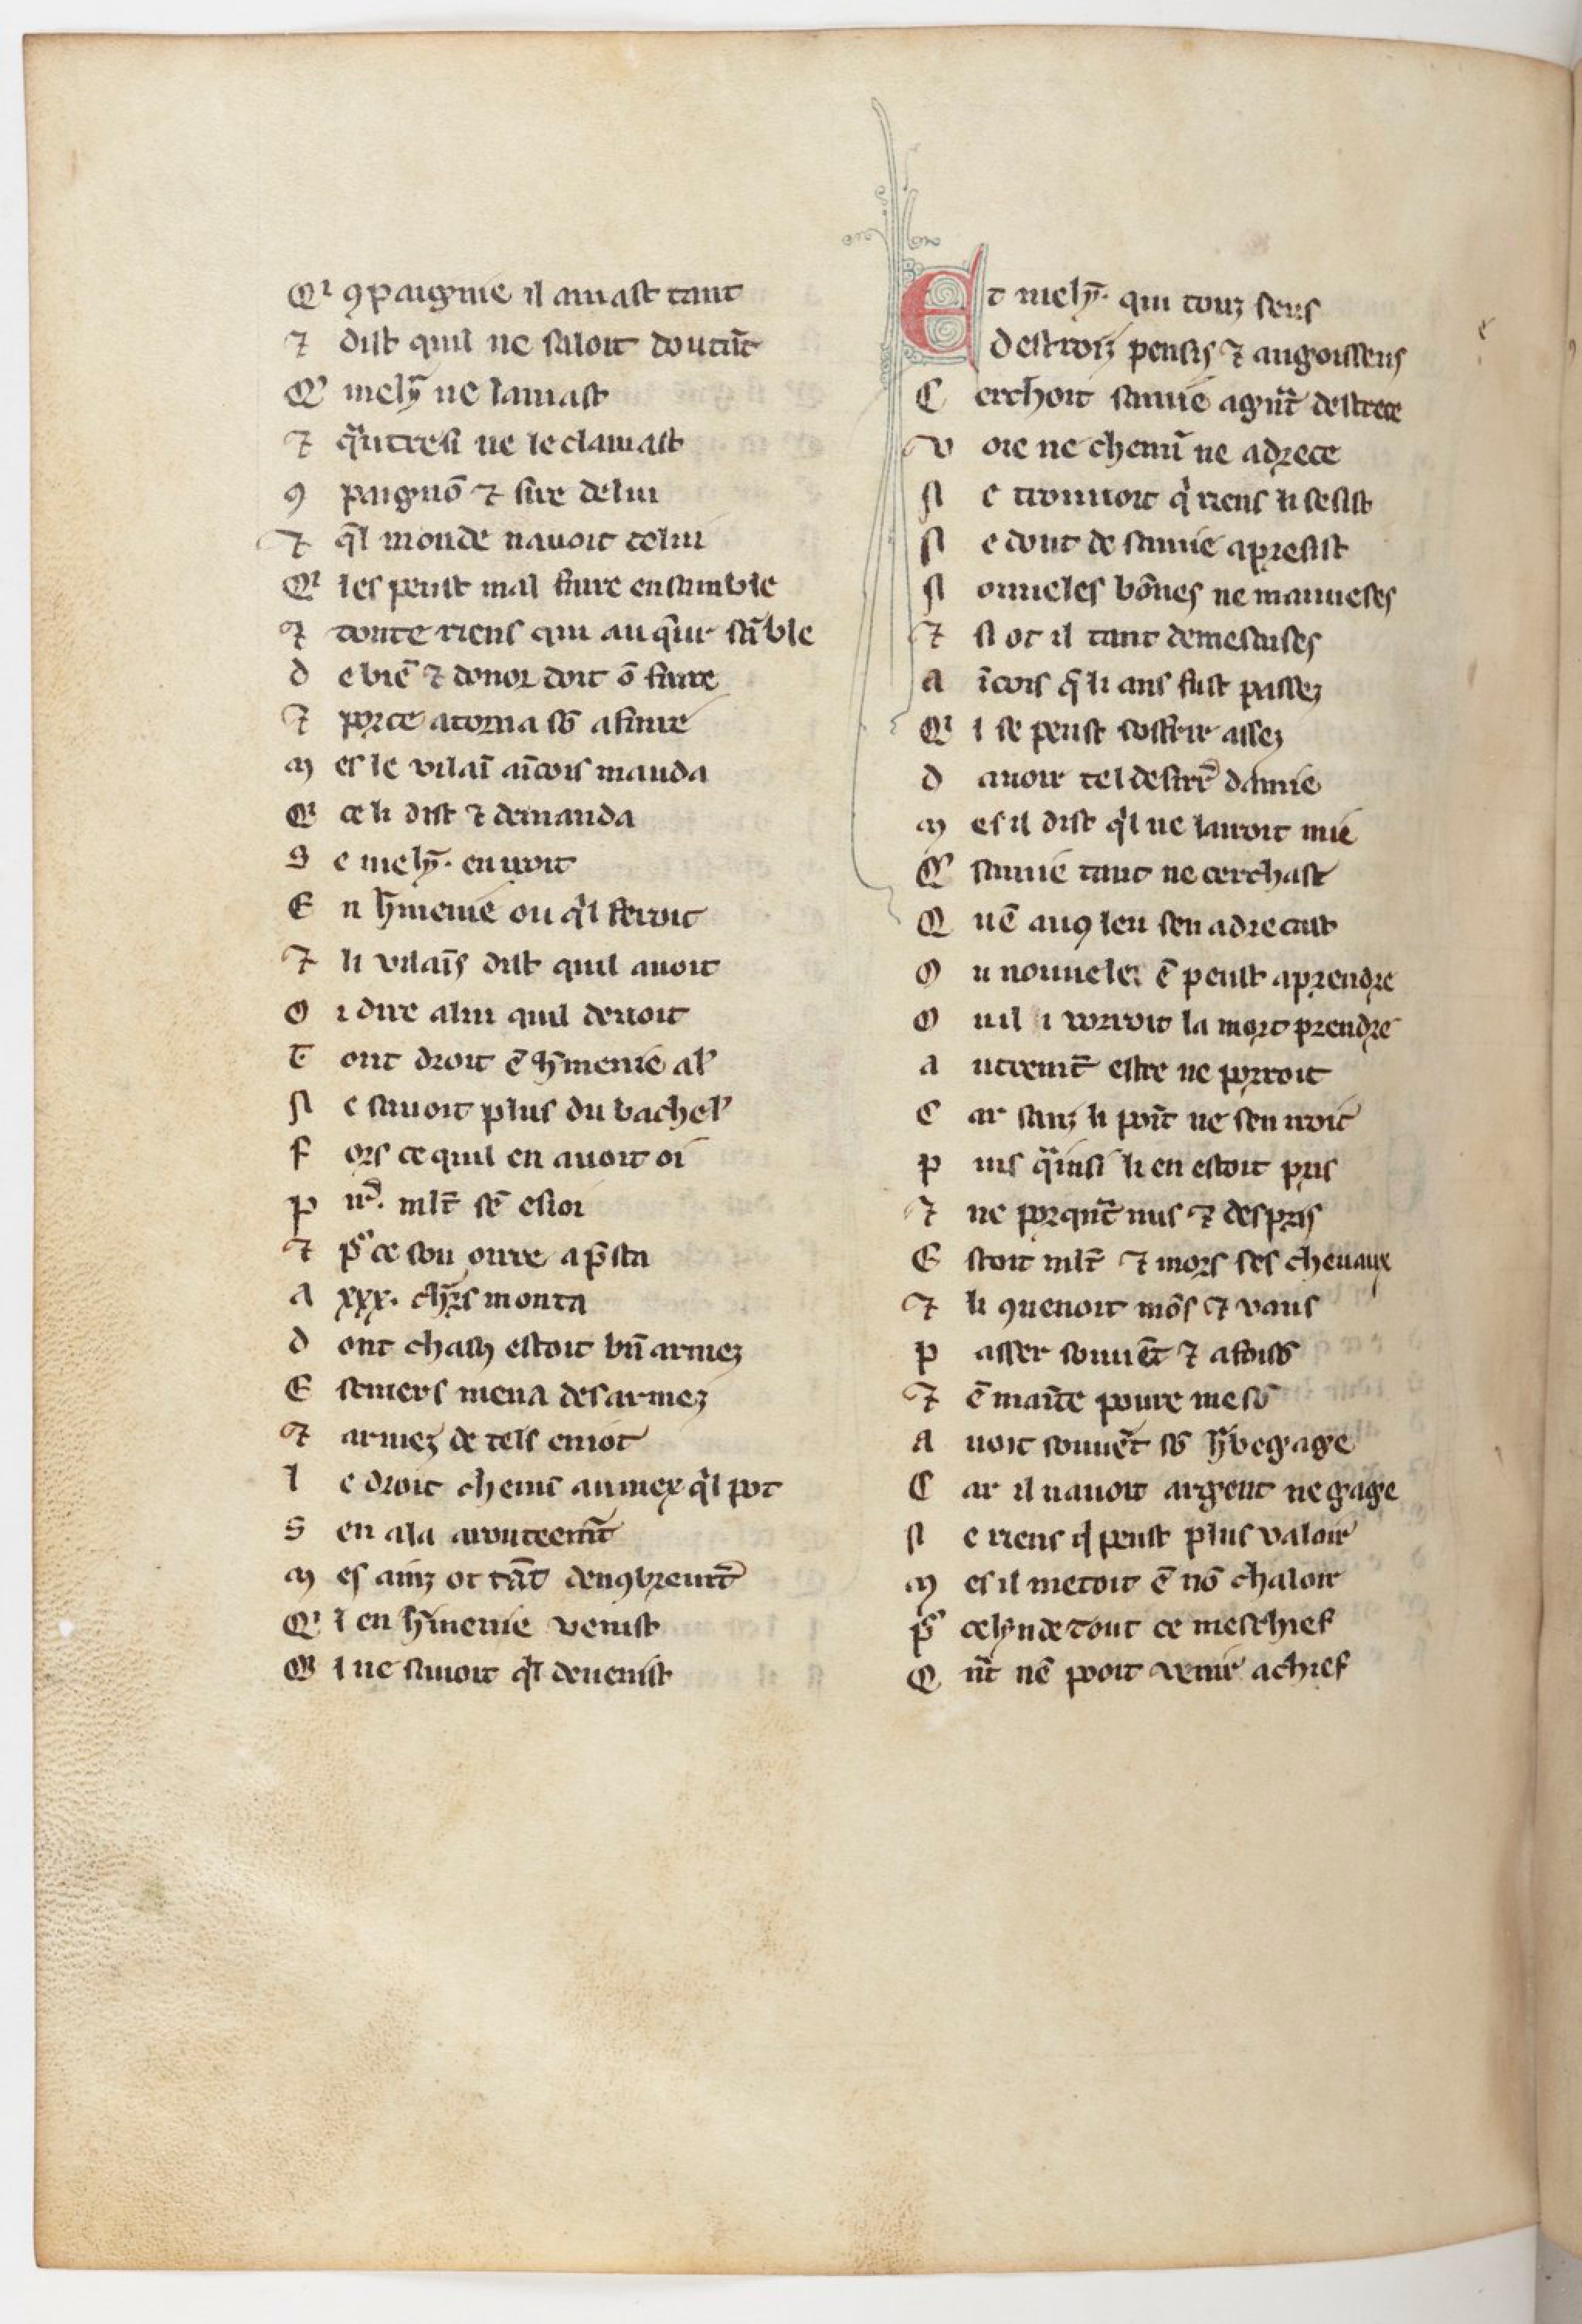 Qͥ ꝯpaignie il amast tant
⁊ dist quil ne saloit doutāt
Qͥ mely᷑ ne lamast
⁊ qͣutresi ne le clamast
ꝯ paignō ⁊ sire de lui
⁊ qͥl monde nauoit celui
Qͥ les peust mal faire ensamble
⁊ toute riens qui au q̄ur sāble
d e biē ⁊ donor doit ō faire
⁊ por ce atorna sō afaire
M es le vilaī aīcois manda
Qͥ ce li dist ⁊ demanda
S e mely᷑. en iroit
E n h᷑menie ou qͥl feroit
⁊ li vilaīs dist quil auoit
O i dire a lui quil deuoit
T out droit ē h᷑menie al᷑
N e sauoit plus du bachel᷑
F ors ce quil en auoit oi
P ird. mlt̄ sē esioi
⁊ p᷑ ce son oirre ap̄sta
A xxx. ch᷑rs monta
D ont chascū estoit bn̄ armez
E scuiers mena desarmez
⁊ armez de tels eniot
L e droit chemī au miex qͥl pot
S en ala arouteemt̄
M es ainz ot tāt denꝯbremt̄
Qͥ l en h᷑menie venist
Qͥ l ne sauoit qͥl deuenist
Et mely᷑. qui touz seus
Destroiz pensis ⁊ angoisseus
C erchoit samie a gnͣt destrece
V oie ne chemī ne adrece
N e trouuoit qͥ riens li sesist
N e dont de samie apresist
N ouueles bōnes ne mauueses
⁊ si ot il tant de mesaises
A īcois qͥ li ans fust passez
Qͥ l se peust sosfrir assez
D auoir tel desirr᷑ damie
M es il dist qͥl ne lauroit mie
Qͥ samie tant ne cerchast
Q uē aucꝯ leu sen adrecast
O u nouueles ē peust aprendre
O uil i vorroit la mort prendre
A utremt̄ estre ne porroit
C ar sanz li poīt ne sen iroit
P uis qͣinsi li en estoit pris
⁊ ne porqnͣt nus ⁊ despris
E stoit mlt̄ ⁊ mors ses cheuaux
⁊ li ꝯuenoit mōs ⁊ vaus
P asser souuēt ⁊ a fois
⁊ ē mainte poure mesō
A uoit souuēt sō h᷑begage
C ar il nauoit argent ne gage
N e riens qͥ peust plus valoir
M es il metoit ē nō chaloir
P᷑ celynde tout ce meschief
Q nͣt nē pooit venir a chief